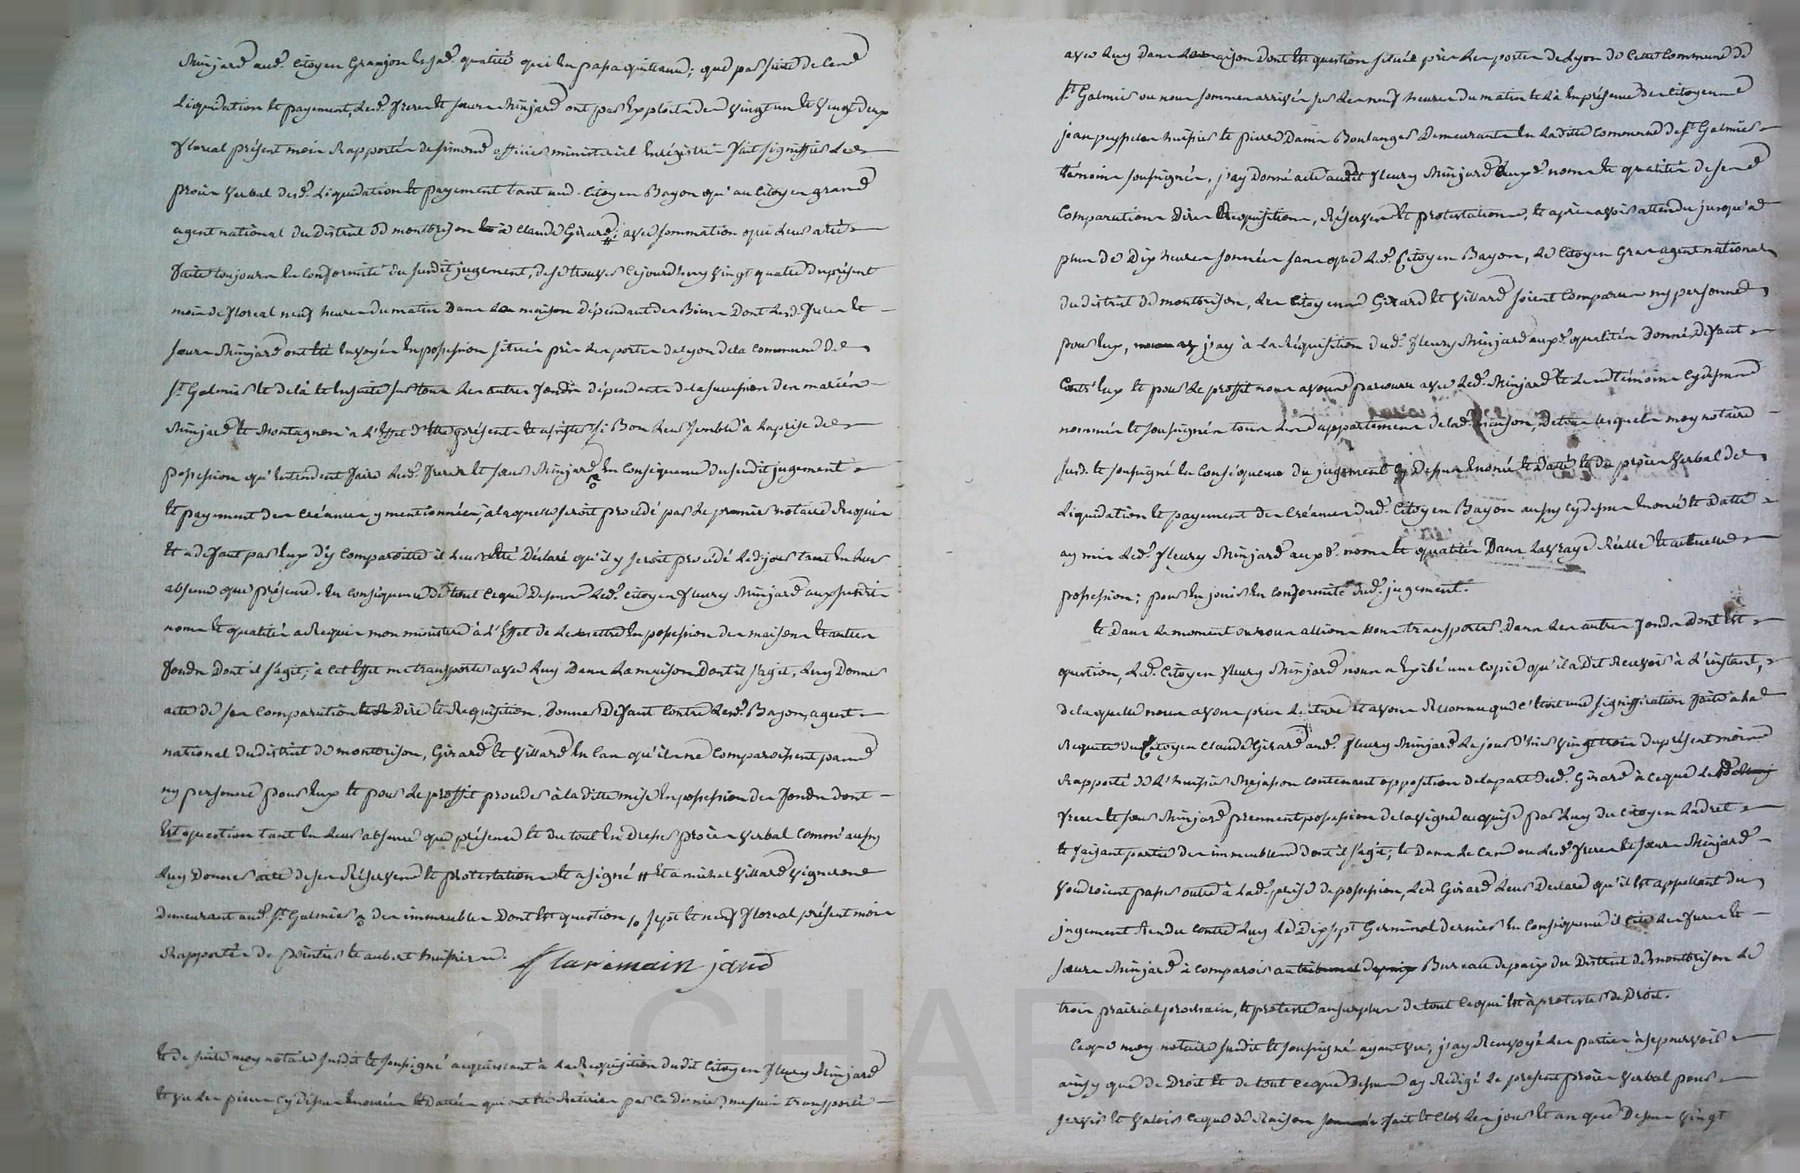 Minjard aud. Citoyen Granjon esd. qualité qui en passa quittance; que par suite de cend
Liquidation et payement, lesd. frere et soeur Minjard ont par exploits des vingt un et vingt deux
floreal présent mois Rapportés de simond officier ministeriel enregistré fait signiffier led
procès verbal desd. Liquidation et payement tant aud. Citoyen Bayon qu'au Citoyen grand
agent national du District de montbrison et à Claude Girard; avec sommation qui leur a été
faite toujours en conformité du susdit jugement, de se trouver cejourd'huy vingt quatre du présent
mois de floreal neuf heures du matin Dans la maison dépendant des Biens Dont lesd. frere et
soeur Minjard ont été envoyés en possession située près les portes de Lyon de la commune de
St. Galmier et delà et ensuite sur tous les autres fonds dépendants de la succession des mariés
Minjard et Montagnon à l'effet d'être présents et assister si Bon leur semble à la prise de
possession qu'entendent faire lesd. frere et soeur Minjard en conséquence du susdit jugement
et payement des créances y mentionnées, à laquelle seroit procédé par le premier notaire Requis
et à défaut par eux d'y comparoitre il leur a été Déclaré qu'il y seroit procédé led. jour tant en leur
absence que présence. En conséquence de tout ceque Dessus led. Citoyen fleury Minjard aux susdits
noms et qualités a Requis mon ministere à l'effet de le mettre en possession des maisons et autres
fonds Dont il s'agit; à cet effet me transporter avec luy Dans la maison Dont il s'agit, luy Donner
acte de ses comparution Dire et Requisition. Donner Défaut contre lesd. Bayon, agent
national du district de montbrison, Girard et Villard en cas qu'ils ne comparoissent pas
ny personne pour eux et pour le proffit proceder à la ditte mise en possession des fonds dont
Est question tant en leur absence que présence et du tout en Dresser procès verbal comme aussy
luy Donner acte de ses Réserves et protestations et a signé # et à michel Villard vigneron
demeurant aud. St. Galmier des immeubles Dont est question sept et neuf floreal présent mois
Rapportés de pointu et aubert huissiers.
et de suite moy notaire susdit et soussigné acquiessant à la Requisition dudit Citoyen fleury Minjard
et vu les pieces cy dessus énoncées et Dattées qui ont été Retirées par ce dernier, me suis transporté
avec luy Dans la maison dont est question située près les portes de Lyon de cette commune de
St. Galmier ou nous sommes arrivés sur les neuf heures du matin et là en présence des Citoyens
jean peysselon huissier et pierre Danis Boulanger Demeurants en la ditte commune de St. Galmier
témoins soussignés, j'ay donné acte audit fleury Minjard auxd. noms et qualités de send
comparutions Dire Requisitions, Réserves et protestations, et après avoir attendu jusqu'à
plus de Dix heures sonnées sans que led. Citoyen Bayon, le Citoyen Gras agent national
du district de montbrison, les Citoyens Girard et Villard soient comparus ny personne
pour eux, j'ay à la Réquisition dud. fleury Minjard auxd. qualités donné Défaut
contr'eux et pour le proffit nous avons parcouru avec led. Minjard et lesd témoins cy dessus
nommés et soussignés tous les appartements de lad. maison, Dans lesquels moy notaire
susd. et soussigné en conséquence du jugement cy Dessus énoncé et Datté et du procès verbal de
Liquidation et payement des Créances dud. Citoyen Bayon aussy cy dessus énoncé et datté
ay mis led. fleury Minjard auxd. noms et qualités Dans la vraye Réelle et actuelle
possession; pour en jouir en conformité dud. jugement.
et Dans le moment ou nous allions nous transporter Dans les autres fonds dont est
question, led. Citoyen fleury Minjard nous a exibé une copie qu'il a Dit Recevoir à l'instant,
de laquelle nous avons pris lecture et avons Reconnu que c'étoit une signiffication faite à la
Requete du Citoyen Claude Girard aud. fleury Minjard le jour d'hier vingt trois du présent mois
Rapporté de l'huissier Mejasson contenant opposition de la part dud. Girard à ceque les
frere et soeur Minjard prennent possession de la vigne acquise par luy du Citoyen Ladret
et faisant partie des immeubles dont il s'agit; et Dans le cas ou lesd. frere et soeur Minjard
voudroient passer outre à lad. prise de possession, led. Girard leur Declare qu'il est appellant du
jugement Rendu contre luy le Dix sept Germinal dernier En conséquence il cite les frere et
soeur Minjard à comparoir au Bureau de paix du District de montbrison le
trois prairial prochain, et proteste au surplus de tout cequi est à protester de Droit.
Ceque moy notaire susdit et soussigné ayant vu, j'ay Renvoyé les parties à se pourvoir
ainsy que de Droit et de tout ceque Dessus ay Rédigé le présent procès verbal pour
servir et valoir ceque de Raison fait et clos les jour et an que Dessus vingt